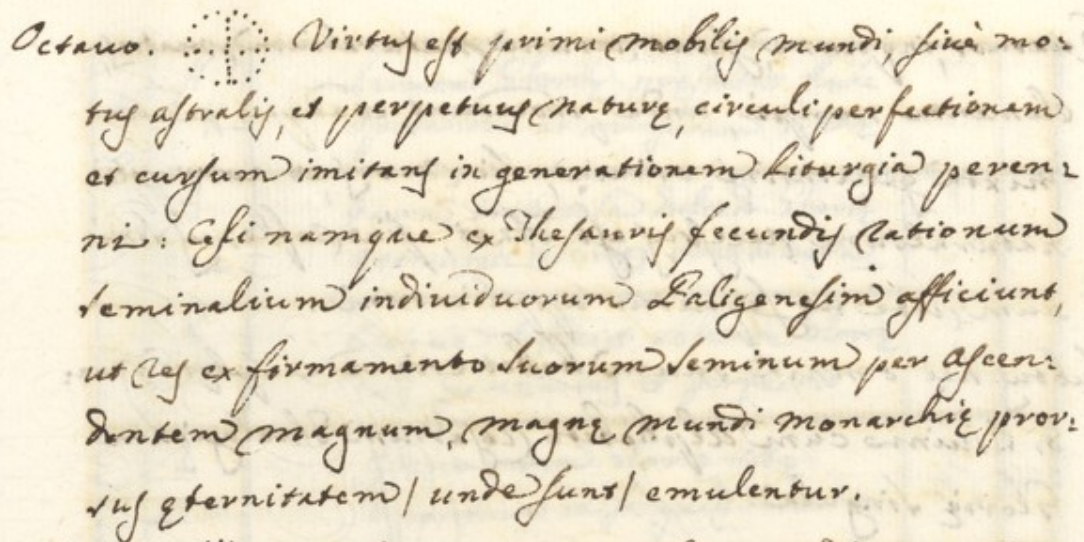 Octauo. Virtus est primi mobilis mundi, siuè mo:
tus astralis, et perpetuus naturę, circuli perfectionem
et cursum imitans in generationem liturgia peren:
ni: Cęli namque ex Thesauris fecundis rationum
seminalium indiuiduorum Paligenesim afficiunt,
ut res ex firmamento suorum seminum per Ascen:
dentem magnum, magnę mundi monarchię pror:
sus ęternitatem / unde sunt / emulentur.